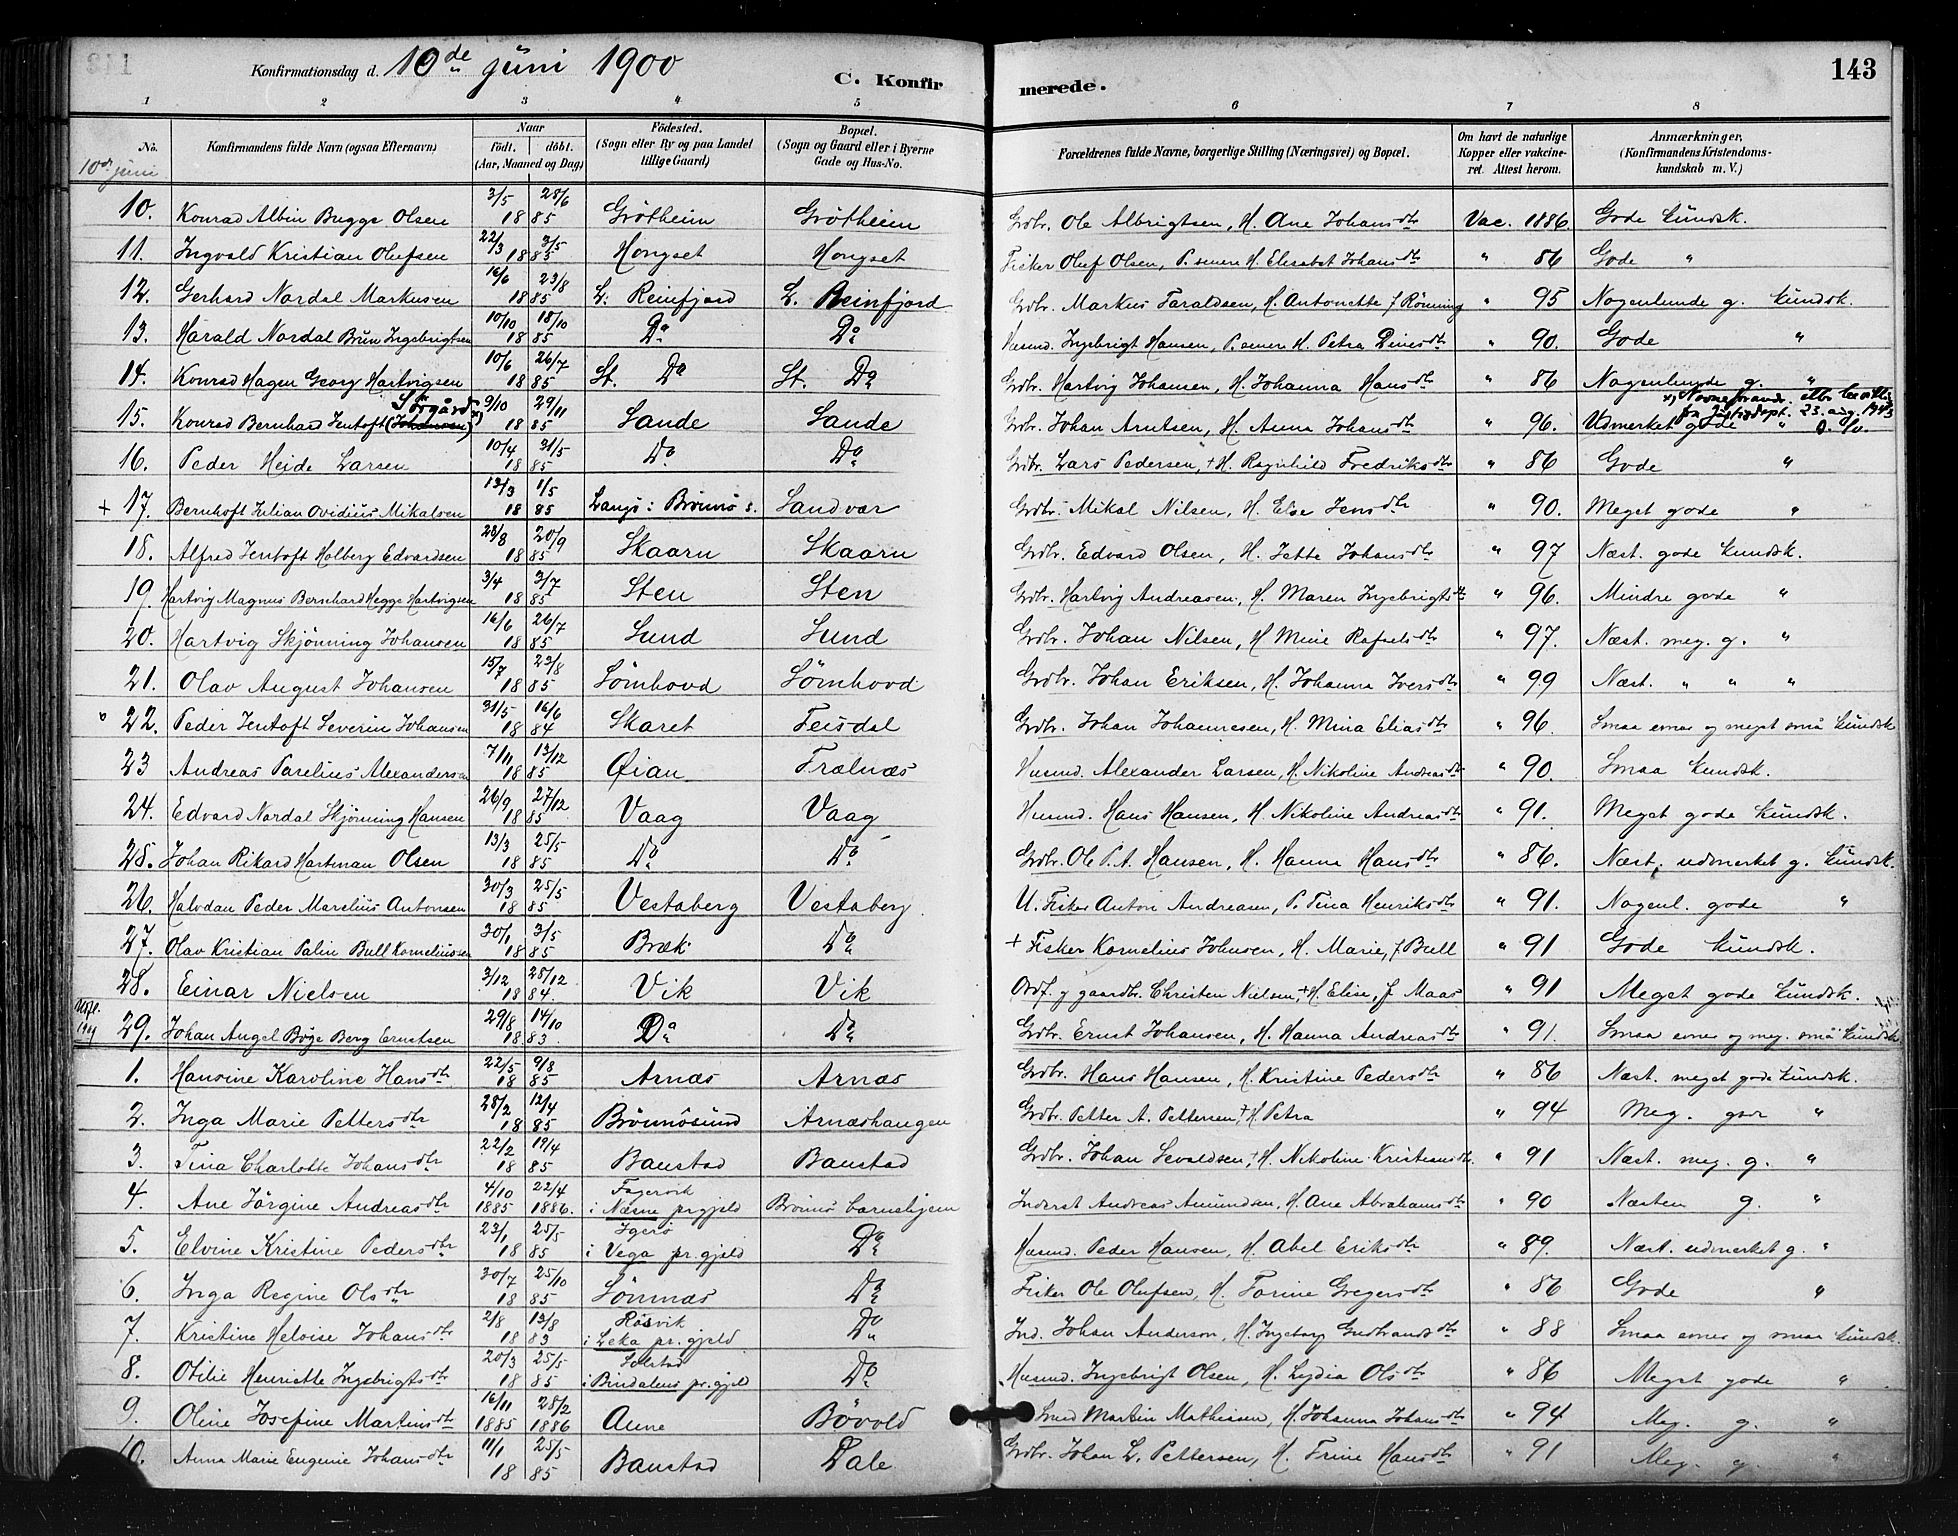 Konfirmationsdag d. 10de juni 1900
C. Konfirmerede.
143
1 2 3 4 5 6 7 8
No. Konfirmandens fulde Navn (ogsaa Efternavn) Naar födt. döbt. (Aar, Maaned og Dag) Födested. (Sogn eller By og paa Landet tillige Gaard) Bopæl. (Sogn og Gaard eller i Byerne Gade og Hus-No. Forældrenes fulde Navne, borgerlige Stilling (Næringsvei) og Bopæl. Om havt de naturlige Kopper eller vakcineret. Attest herom. Anmærkninger, (Konfirmandens Kristendomskundskab m. V.)
10de juni
10. Konrad Albin Bugge Olsen 3/5 28/6 1885 Grötheim Grötheim Grdbr. Ole Albrigtsen, H. Ane Johansdtr Vac. 1886. Gode kundsk.
11. Ingvald Kristian Olufsen 22/3 3/5 1885 Hongset Hongset Fisker Oluf Olsen, P. senere H. Elisabet Johansdtr " 86 Gode "
12. Gerhard Nordal Markusen 16/6 23/8 1885 L. Reinfjord L. Reinfjord Grdbr. Markus Taraldsen, H. Antonette f Rönning " 95 Nogenlunde g. kundsk.
13. Harald Nordal Brun Ingebrigtsen 10/10 18/10 1885 Do Do Husmd. Ingebrigt Hansen, P. senere H. Petra Dinesdtr " 90. Gode "
14. Konrad Hagen Georg Hartvigsen 10/6 26/7 1885 St. Do St. Do Grdbr. Hartvig Johansen, H. Johanna Hansdtr " 86 Nogenlunde g. "
15. Konrad Bernhard Jentoft (Johansen) Sörgård x) 9/10 29/11 1885 Sande Sande Grdbr. Johan Arntsen, H. Anna Johansdtr " 96. Udmerket gode "
x) Navneforandr. etter bevillig. fra Justisdept. 23. aug. 1943
16. Peder Heide Larsen 10/4 31/5 1885 Do Do Grdbr. Lars Pedersen, + H. Ragnhild Fredriksdtr " 86 Gode "
+ 17. Bernhoft Julian Ovidius Mikalsen 13/3 1/5 1885 Langö i Brönnö s. Sandvær Grdbr. Mikal Nilsen, H. Else Jensdtr " 90. Meget gode "
18. Alfred Jentoft Holberg Edvardsen 23/8 20/9 1885 Skaarn Skaarn Grdbr. Edvard Olsen, H. Jette Johansdtr " 97 Næst. gode kundsk.
19. Hartvig Magnus Bernhard Hegge Hartvigsen 3/4 3/7 1885 Sten Sten Grdbr. Hartvig Andreasen, H. Maren Ingebrigtsdtr " 96. Mindre gode "
20. Hartvig Skjönning Johansen 16/6 26/7 1885 Sund Sund Grdbr. Johan Nilsen, H Mine Rafaelsdtr " 97. Næst. meg. g. "
21. Olav August Johansen 15/7 23/8 1885 Sömhovd Sömhovd Grdbr. Johan Eriksen, H. Johanna Iversdtr " 99 Næst. " " "
22. Peder Jentoft Severin Johansen 31/5 16/6 1884 Skaret Feisdal Grdbr. Johan Johannesen, H. Mina Eliasdtr " 96. Smaa evner og meget små kundsk
23 Andreas Parelius Alexandersen 7/11 13/12 1885 Øian Trælnæs Husmd. Alexander Larsen, H. Nikoline Andreasdtr " 90. Smaa kundsk.
24. Edvard Nordal Skjönning Hansen 26/9 27/12 1885 Vaag Vaag Husmd. Hans Hansen, H. Nikoline Andreasdtr " 91. Meget gode kundsk.
25. Johan Rikard Hartman Olsen 13/3 25/5 1885 Do Do Grdbr. Ole P. A. Hansen, H. Hanna Hansdtr " 86. Næst. udmerket g. kundsk.
26. Halvdan Peder Marelius Antonsen 30/3 25/5 1885 Vestaberg Vestaberg U. Fisker Anton Andreasen, P. Tina Henriksdtr " 91. Nogenl. gode "
27. Olav Kristian Palin Bull Korneliussen 30/1 3/5 1885 Bræk Do + Fisker Kornelius Johnsen, H. Marie, f Bull " 91 Gode kundsk.
28. Einar Nielsen 3/12 28/12 1884. Vik Vik Ordf. g gaardbr. Christen Nielsen, + H. Elise, f Maas " 91 Meget gode kundsk.
29. Johan Angel Böge Berg Ernstsen 29/8 14/10 1883. Do Do Grdbr. Ernst Johansen, H. Hanna Andreasdtr " 91. Smaa evner og meg. små kundsk
1. Hansine Karoline Hansdtr 22/5 9/8 1885 Arnæs Arnæs Grdbr. Hans Hansen, H. Kristine Pedersdtr " 86 Næst. meget gode kundsk.
2. Inga Marie Pettersdtr 28/2 12/4 1885 Brönnösund Arnæshaugen Grdbr. Petter A. Pettersen, + H. Petra " 94 Meg. gode "
3. Tina Charlotte Johansdtr 22/2 19/4 1885 Baustad Baustad Grdbr. Johan Sevaldsen, + H. Nikoline Kristiansdtr. " 91 Næst. meg. g. "
4. Ane Jörgine Andreasdtr 4/10 1885 22/4 1886. Fagervik i Næsne pr.gjeld Brönnö barnehjem Inderst Andreas Amundsen, H. Ane Abrahamsdtr " 90 Næsten g. "
5. Elvine Kristine Pedersdtr 23/1 25/5 1885 Igerö i Vega pr.gjeld Do Husmd. Peder Hansen, H. Abel Eriksdtr " 89. Næst. udmerket g. "
6. Inga Regine Olsdtr 30/7 25/10 1885 Sömnæs Do Fisker Ole Olufsen, H. Torine Gregersdtr " 86 Gode "
7. Kristine Heloise Johansdtr 2/8 13/8 1883 Rösvik i Leka pr.gjeld Do Ind. Johan Anderson, H. Ingeborg Gudbrandsdtr " 88 Smaa evner og smaa kundsk.
8. Otilie Henriette Ingebrigtsdtr 20/3 25/5 1885 Solstad i Bindalens pr.gjeld Do Husmd. Ingebrigt Olsen, H. Lydia Olsdtr " 86 Meget gode "
9. Oline Josefine Martinsdtr 16/11 1885 28/2 1886 Aune Bövold Smed Martin Mathisen, H. Johanna Johansdtr " 94 Meg. g. "
10. Anna Marie Eugenie Johansdtr 11/1 25/5 1885 Baustad Dale Grdbr. Johan L. Pettersen, H. Trine Hansdtr " 91 Meg. g. "